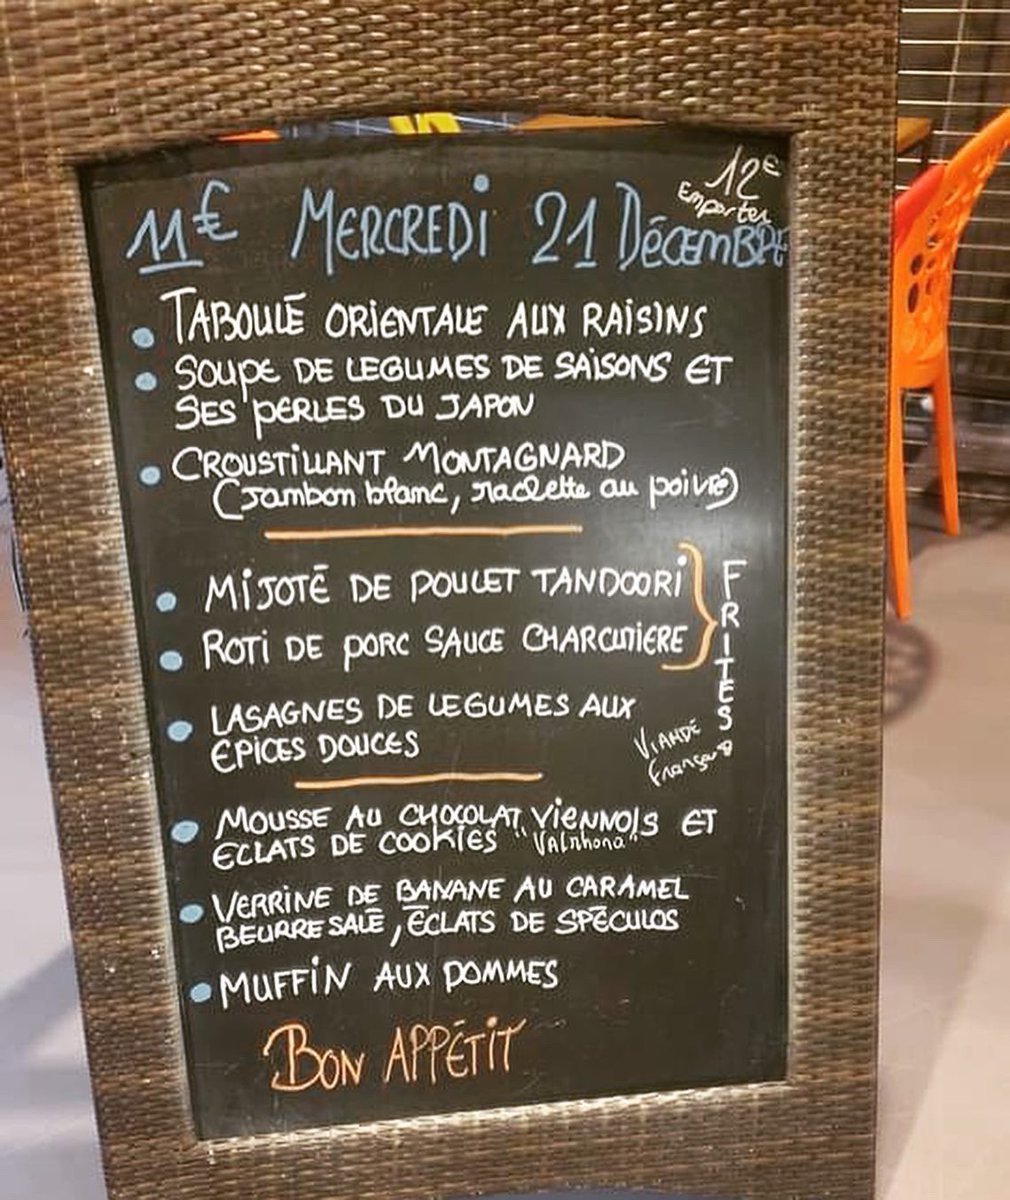 12€
Emporter
11€ MERCREDI 21 DÉCEMBRE
TABOULÉ ORIENTALE AUX RAISINS
SOUPE DE LEGUMES DE SAISONS ET
SES PERLES DU JAPON
CROUSTILLANT MONTAGNARD
(Jambon blanc, raclette au poivre)
MIJOTÉ DE POULET TANDOORI
ROTI DE PORC SAUCE CHARCUTIERE
FRITES
LASAGNES DE LEGUMES AUX
EPICES DOUCES
VIANDE
Française
MOUSSE AU CHOCOLAT VIENNOIS ET
ECLATS DE COOKIES "Valrhona"
VERRINE DE BANANE AU CARAMEL
BEURRE SALÉ, ÉCLATS DE SPÉCULOS
MUFFIN AUX POMMES
BON APPÉTIT